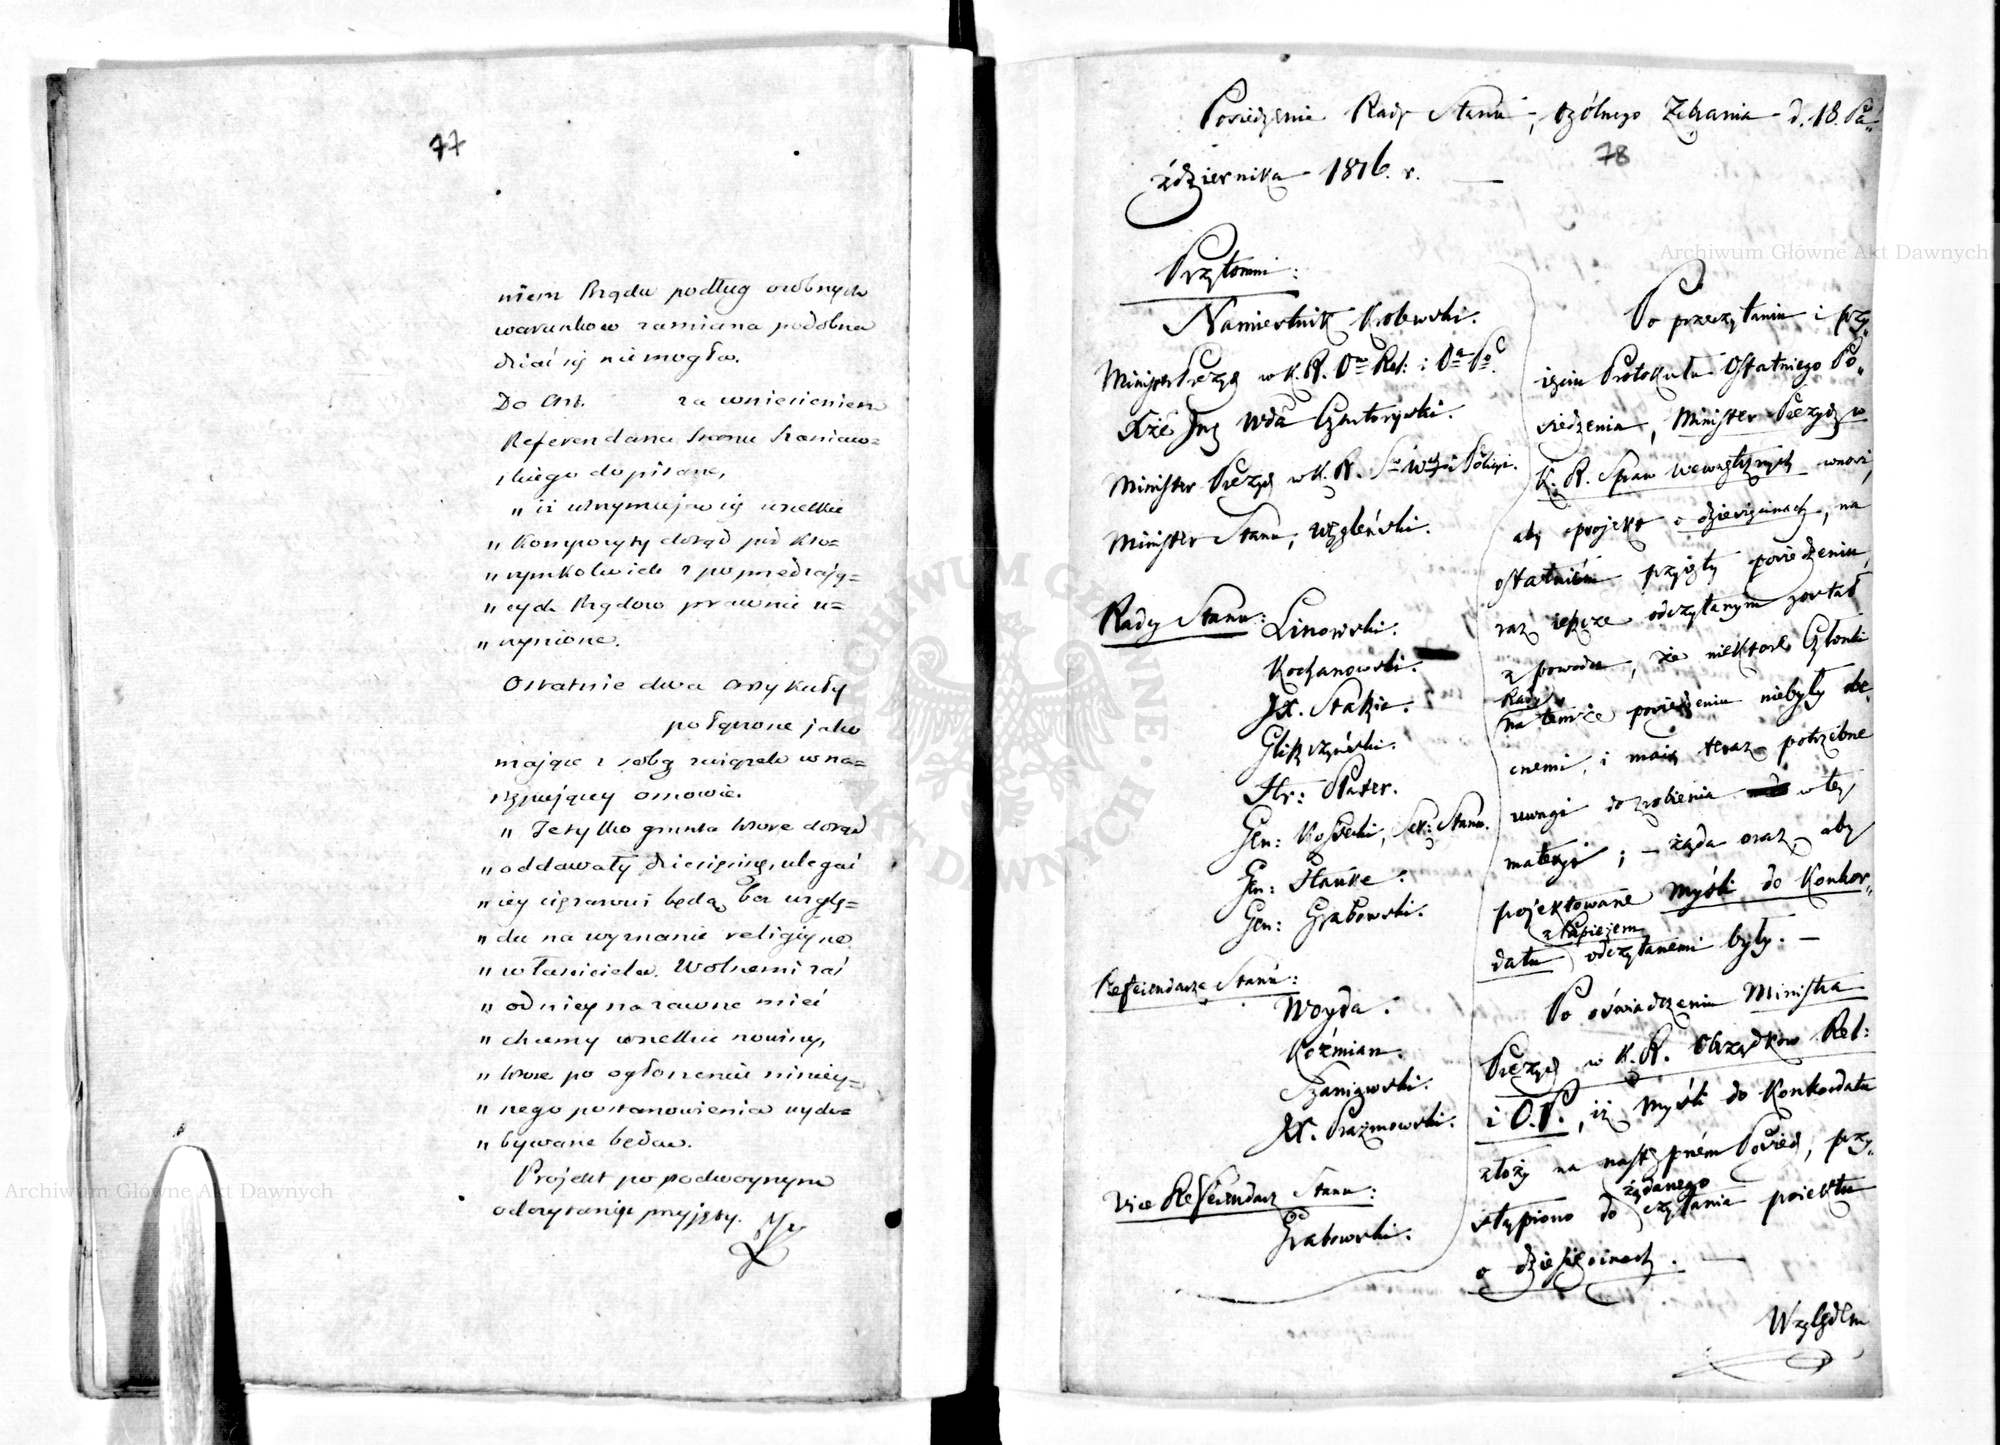 77
niem Rządu podług osobnych
warunkow zamiana podobna
dziać się niemogła.
Do Art. za wniesieniem
Referendarza Stanu Staniaw=
skiego dopisano,
„ iż utrzymują się wszelkie
„ Kompozyty dotąd pod kto=
„ rymkolwiek z poprzedzają=
„ cych Rządow prawnie u=
„ czynione.
Ostatnie dwa Artykuły
połączone jako
mające z sobą związek w na=
stępujący osnowie.
„ Te tylko grunta ktore dotąd
„ oddawały dziesięcinę, ulegać
„ iey ciężarowi będą bez wzglę=
„ du na wyznanie religiyne
„ właściciela. Wolnemi zaś
„ od niey na zawsze mieć
„ chcemy wszelkie nowiny,
„ ktore po ogłoszeniu niniey=
„ szego postanowienia wydo=
„ bywane będą.
Projekt po podwoynym
odczytaniu przyjęty.
Posiedzenie Rady Stanu, ogólnego Zebrania d. 18. Pa„
78
ździernika 1816. r. —
Przytomni:
Namiestnik Krolewski.
Minister Prezyd w K. R. O. Rel: i O. P.
Xże Jmć Wda Czartoryski.
Minister Prezyd w K. R. S. W. i Policyi.
Minister Stanu, Węgleński.
Radcy Stanu: Linowski.
Kochanowski.
JX. Staszic.
Gliszczyński.
Hr: Plater.
Gen: Kossecki, Sek: Stanu.
Gen: Hauke.
Gen: Grabowski.
Referendarze Stanu:
Woyda.
Koźmian.
Szaniawski.
JX. Prażmowski.
Vice Referendarz Stanu:
Grabowski.
Po przeczytaniu i przy„
ięciu Protokułu Ostatniego Po„
siedzenia, Minister Prezyd w
K. R. Spraw Wewnętrznych wnosi,
aby projekt o dziesięcinach, na
ostatniém przyięty posiedzeniu,
raz ieszcze odczytanym został
z powodu, że niektore Członki
Rady
na temże posiedzeniu niebyły obe„
cnemi, i maią teraz potrzebne
uwagi do zrobienia w tey
materyi; — żąda oraz, aby
projektowane myśli do Konkor„
z Papieżem
datu odczytanemi były. —
Po oświadczeniu Ministra
Prezyd w K. R. Obrządkow Rel:
i O. P., iż myśli do Konkordatu
złoży na następném Posied, przy„
żądanego
stąpiono do czytania proiektu
o dziesięcinach. —
Względem